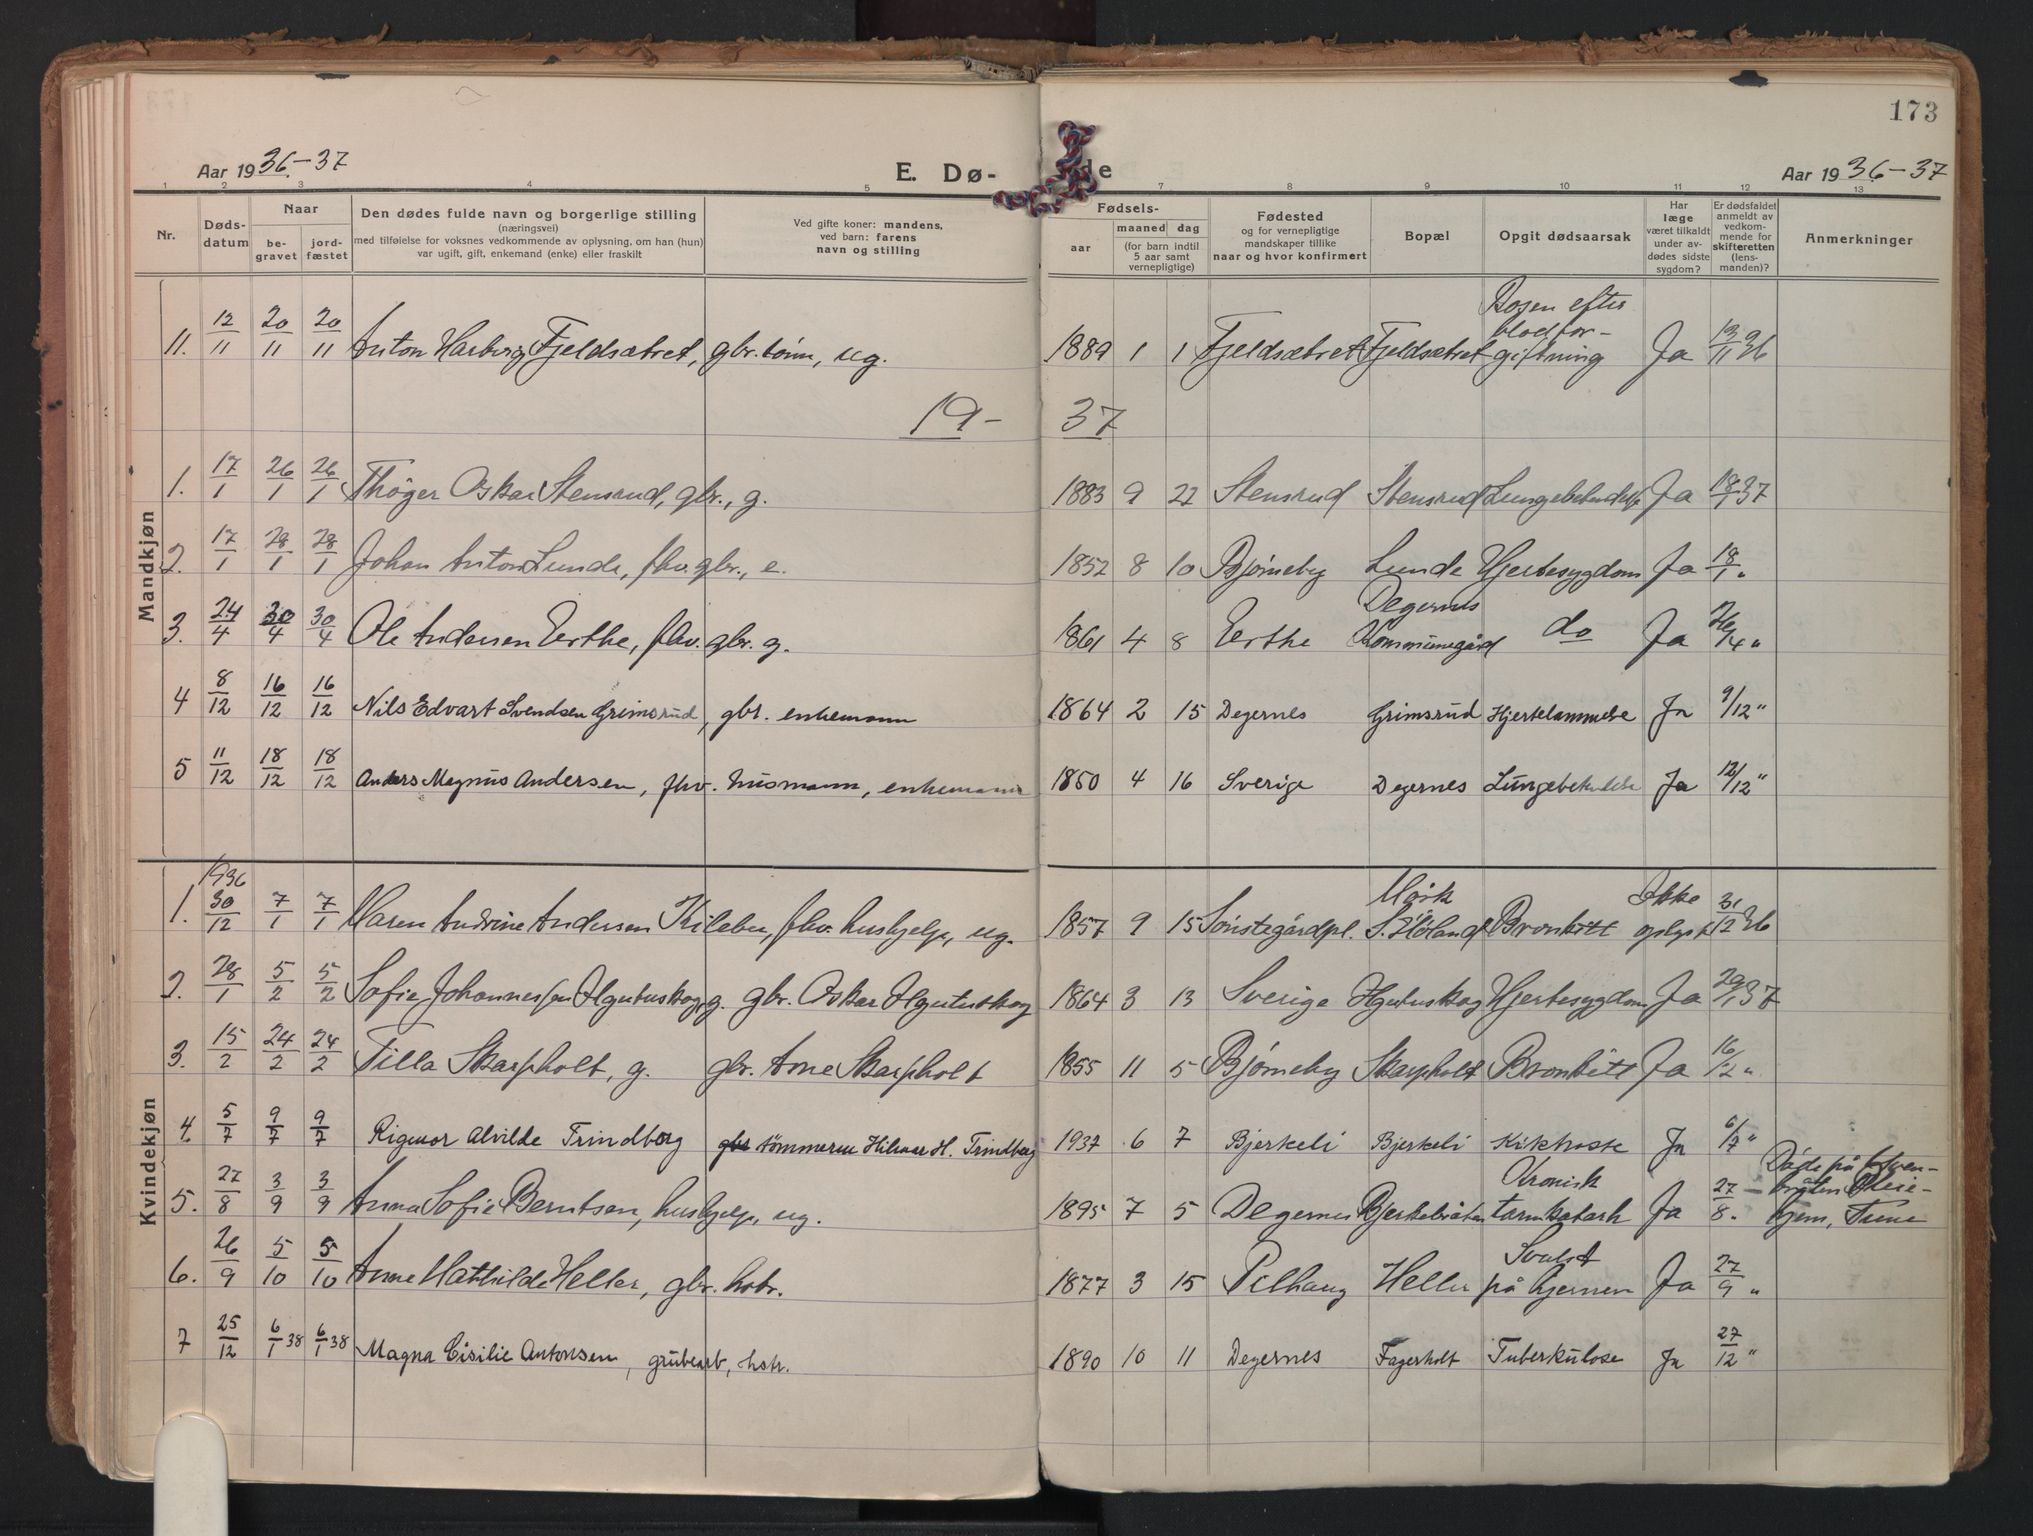 173
Aar 1936.-37 E. Dø- de Aar 1936-37
1 2 3 4 5 7 8 9 10 11 12 13
Nr. Døds-datum Naar be-gravet jord-fæstet Den dødes fulde navn og borgerlige stilling (næringsvei) med tilføielse for voksnes vedkommende av oplysning, om han (hun) var ugift, gift, enkemand (enke) eller fraskilt Ved gifte koner: mandens, ved barn: farens navn og stilling Fødsels- aar maaned dag (for barn indtil 5 aar samt vernepligtige) Fødested og for vernepligtige mandskaper tillike naar og hvor konfirmert Bopæl Opgit dødsaarsak Har læge været tilkaldt under av-dødes sidste sygdom? Er dødsfaldet anmeldt av vedkom-mende for skifteretten (lens-manden)? Anmerkninger
Mandkjøn
11. 12/11 20/11 20/11 Anton Harberg Fjeldsætret, gbr.sønn, ug. 1889 1 1 Fjeldsætret Fjeldsætret Rosen efter blodfor-giftning Ja 13/11 36
19- 37
1. 17/1 26/1 26/1 Thøger Oskar Stensrud, gbr., g. 1883 9 22 Stensrud Stensrud Lungebetendelse Ja 18/1 37
2. 17/1 28/1 28/1 Johan Anton Lunde, fhv. gbr., e. 1852 8 10 Bjørneby Lunde Hjertesygdom Ja 18/1 "
3. 24/4 30/4 30/4 Ole Andersen Eerthe, fhv. gbr. g. 1861 4 8 Eerthe Degernes Kommunegård do Ja 26/4 "
4 8/12 16/12 16/12 Nils Edvart Svendsen Grimsrud, gbr. enkemann 1864 2 15 Degernes Grimsrud Hjertelammelse Ja 9/12 "
5 11/12 18/12 18/12 Anders Magnus Andersen, fhv. husmann, enkemann 1850 4 16 Sverige Degernes Lungebet Ja 12/12 "
Kvindekjøn
1. 1936 30/12 7/1 7/1 Maren Andrine Andersen Kilebu, fhv. hushjelp, ug. 1857 9 15 Sønstegårdpl. Mørk S. Høland Bronkitt Ikke oplyst 31/12 36
2. 28/1 5/2 5/2 Sofie Johannessen g. gbr. Oskar 1864 3 13 Sverige Hjertesygdom Ja 29/1 37
3. 15/2 24/2 24/2 Tilla Skarpholt, g. gbr. Arne Skarpholt 1855 11 5 Bjørneby Skarpholt Bronkitt Ja 16/2 "
4. 5/7 9/7 9/7 Rigmor Alvilde Trindborg gbr tømmerm Hilmar H. Trindborg 1937 6 7 Bjerkeli Bjerkeli Kikhoste Ja 6/7 "
5. 27/8 3/9 3/9 Anna Sofie Berntsen, hushjelp, ug. 1895 7 5 Degernes Bjerkebråten Kronisk tarmkatarh Ja 27/8. - Døde på bråten Pleie-hjem, Tune
6. 26/9 5/10 5/10 Anne Mathilde Heller, gbr. hstr. 1877 3 15 Pilhaug Heller Svulst på hjernen Ja 27/9 "
7 25/12 6/1 38 6/1 38 Magna Cisilie Antonsen, grubearb, hstr. 1890 10 11 Degernes Fagerholt Tuberkulose Ja 27/12 "